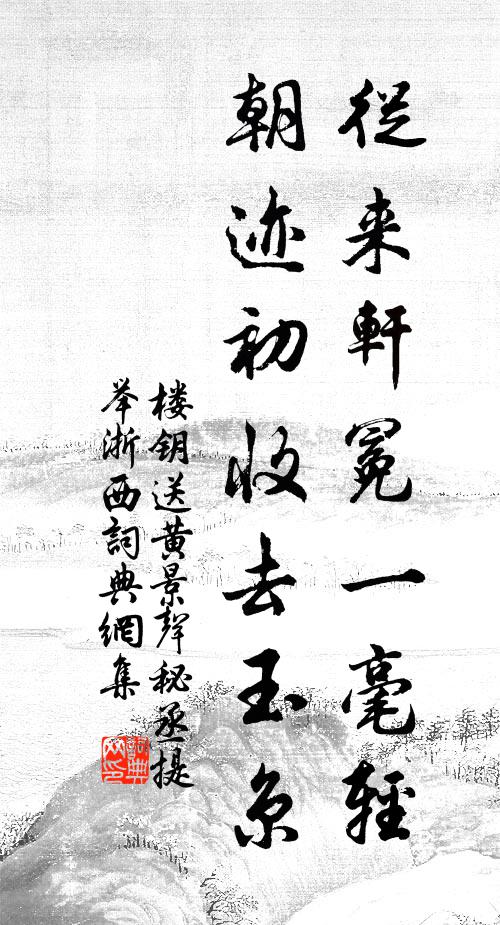 從来軒冕一毫輕
朝迹初收去玉京
楼钥送黄景聲秘丞提
举浙西詞典網集
詞典网印